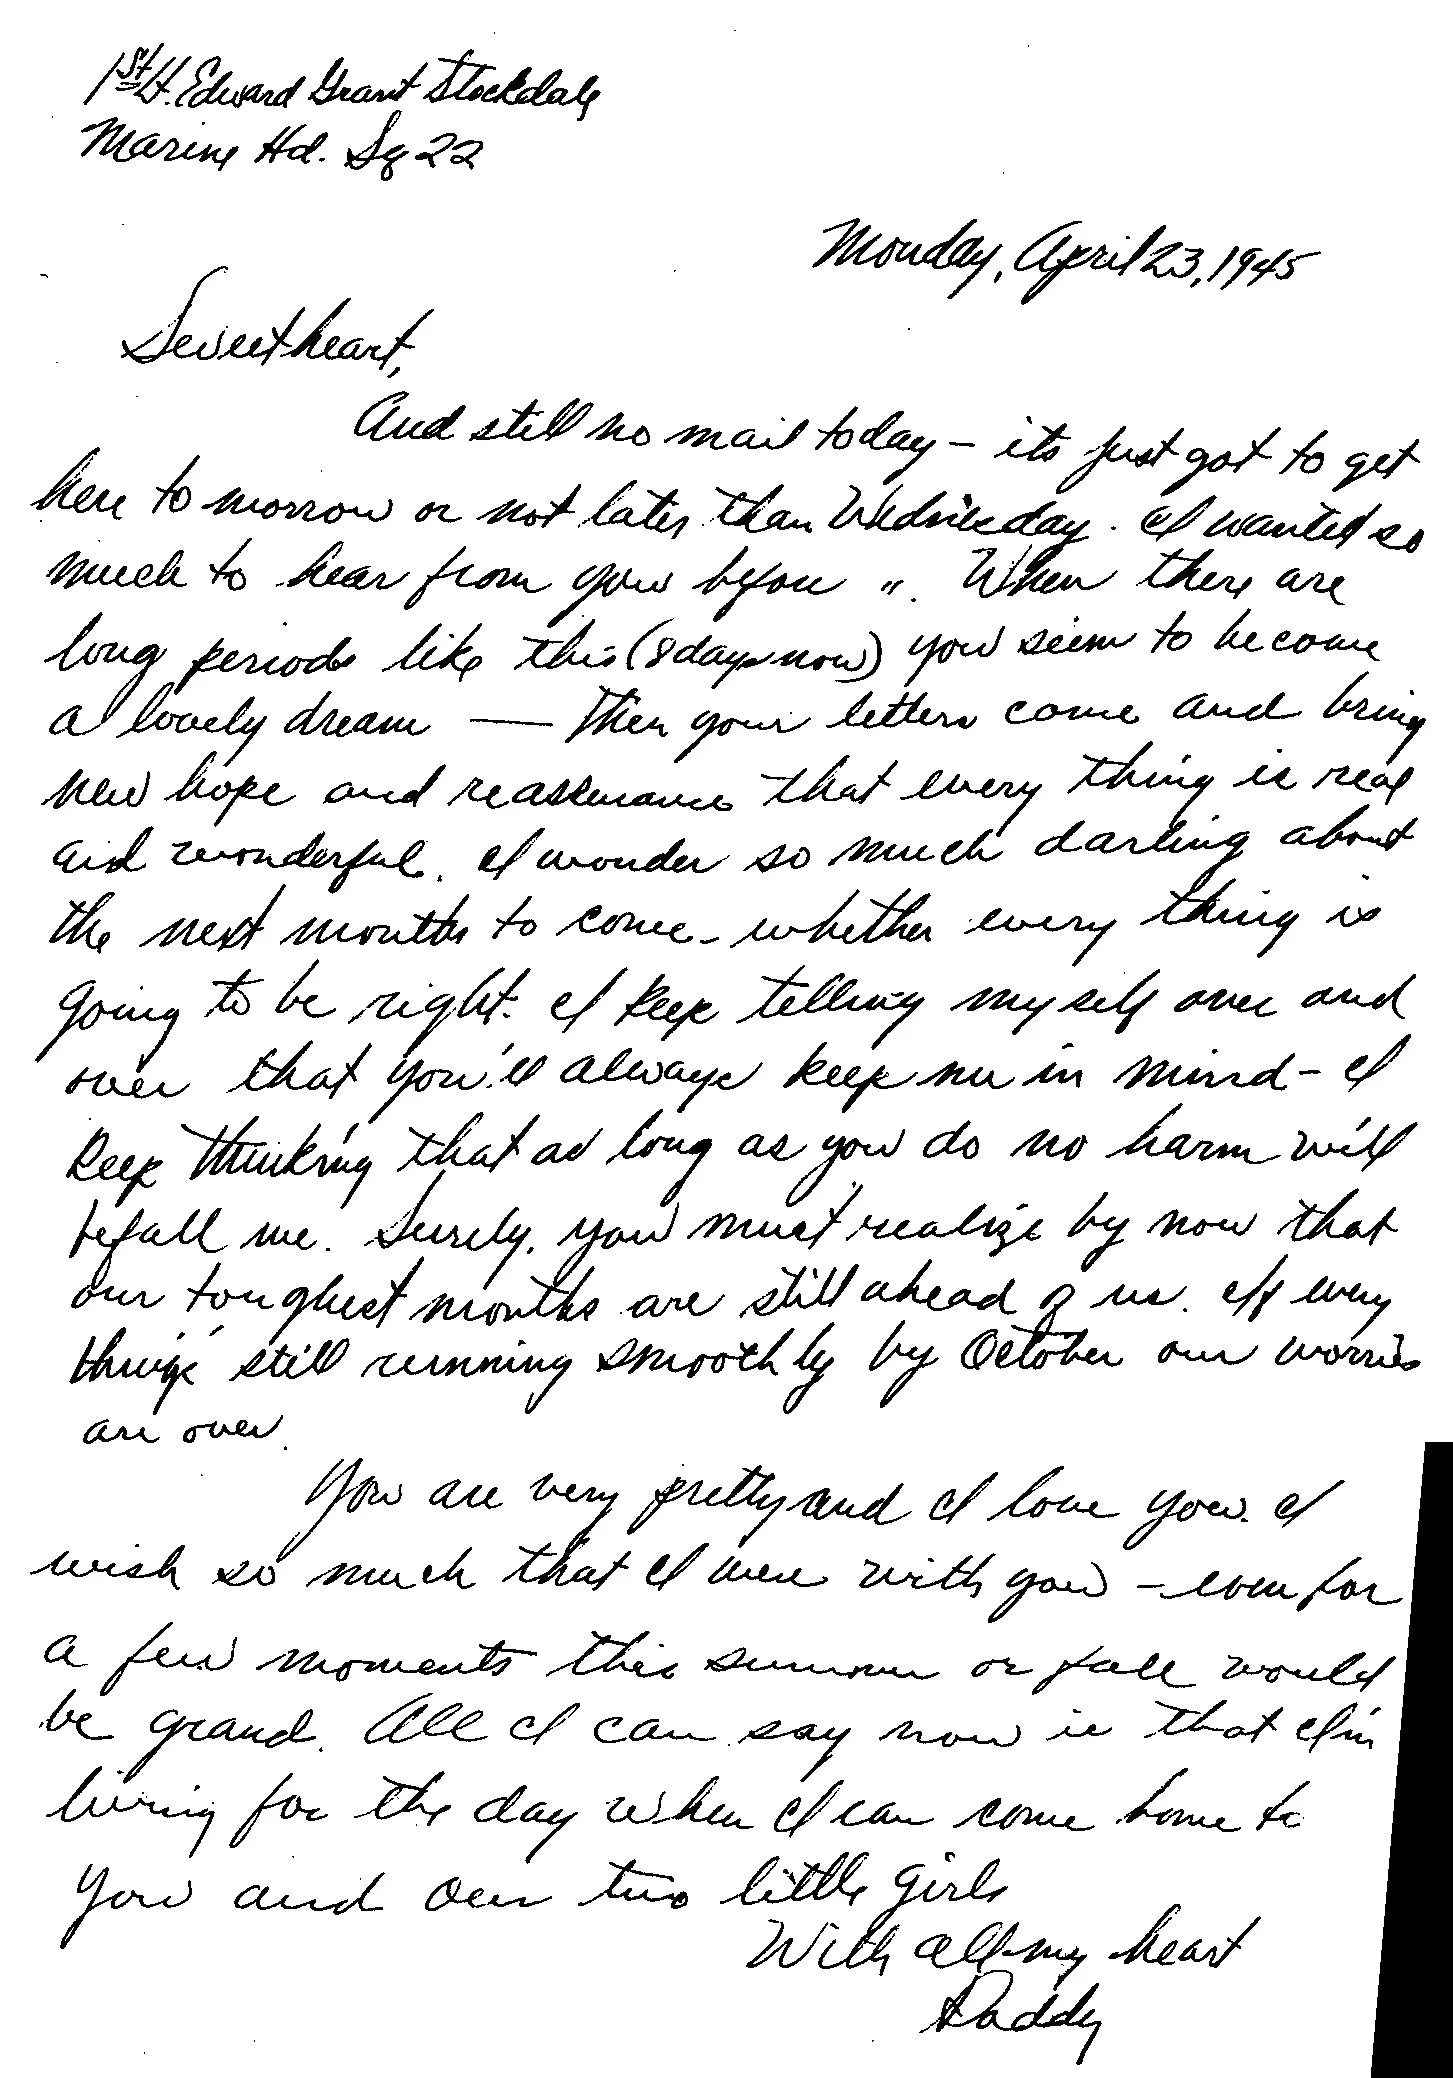 1st Lt. Edward Grant Stockdale
Marine Hd. Sq 22
Monday, April 23, 1945
Sweetheart,
And still no mail today – its just got to get
here tomorrow or not later than Wednesday. I wanted so
much to hear from you before ". When there are
long periods like this (8 days now) you seem to become
a lovely dream — Then your letters come and bring
new hope and reassurance that every thing is real
and wonderful. I wonder so much darling about
the next months to come – whether every thing is
going to be right. I keep telling myself over and
over that you'll always keep me in mind – I
keep thinking that as long as you do no harm will
befall me. Surely, you must realize by now that
our toughest months are still ahead of us. If every
thing's still running smoothly by October our worries
are over.
You are very pretty and I love you. I
wish so much that I were with you – even for
a few moments this summer or fall would
be grand. All I can say now is that I'm
living for the day when I can come home to
you and our two little girls
With all my heart
Daddy